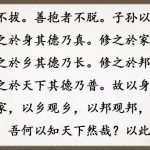 不拔。善抱者不脱。子孙以
之於身其德乃真。修之於家
之於乡其德乃长。修之於邦
之於天下其德乃普。故以身
家，以乡观乡，以邦观邦，
吾何以知天下然哉？以此